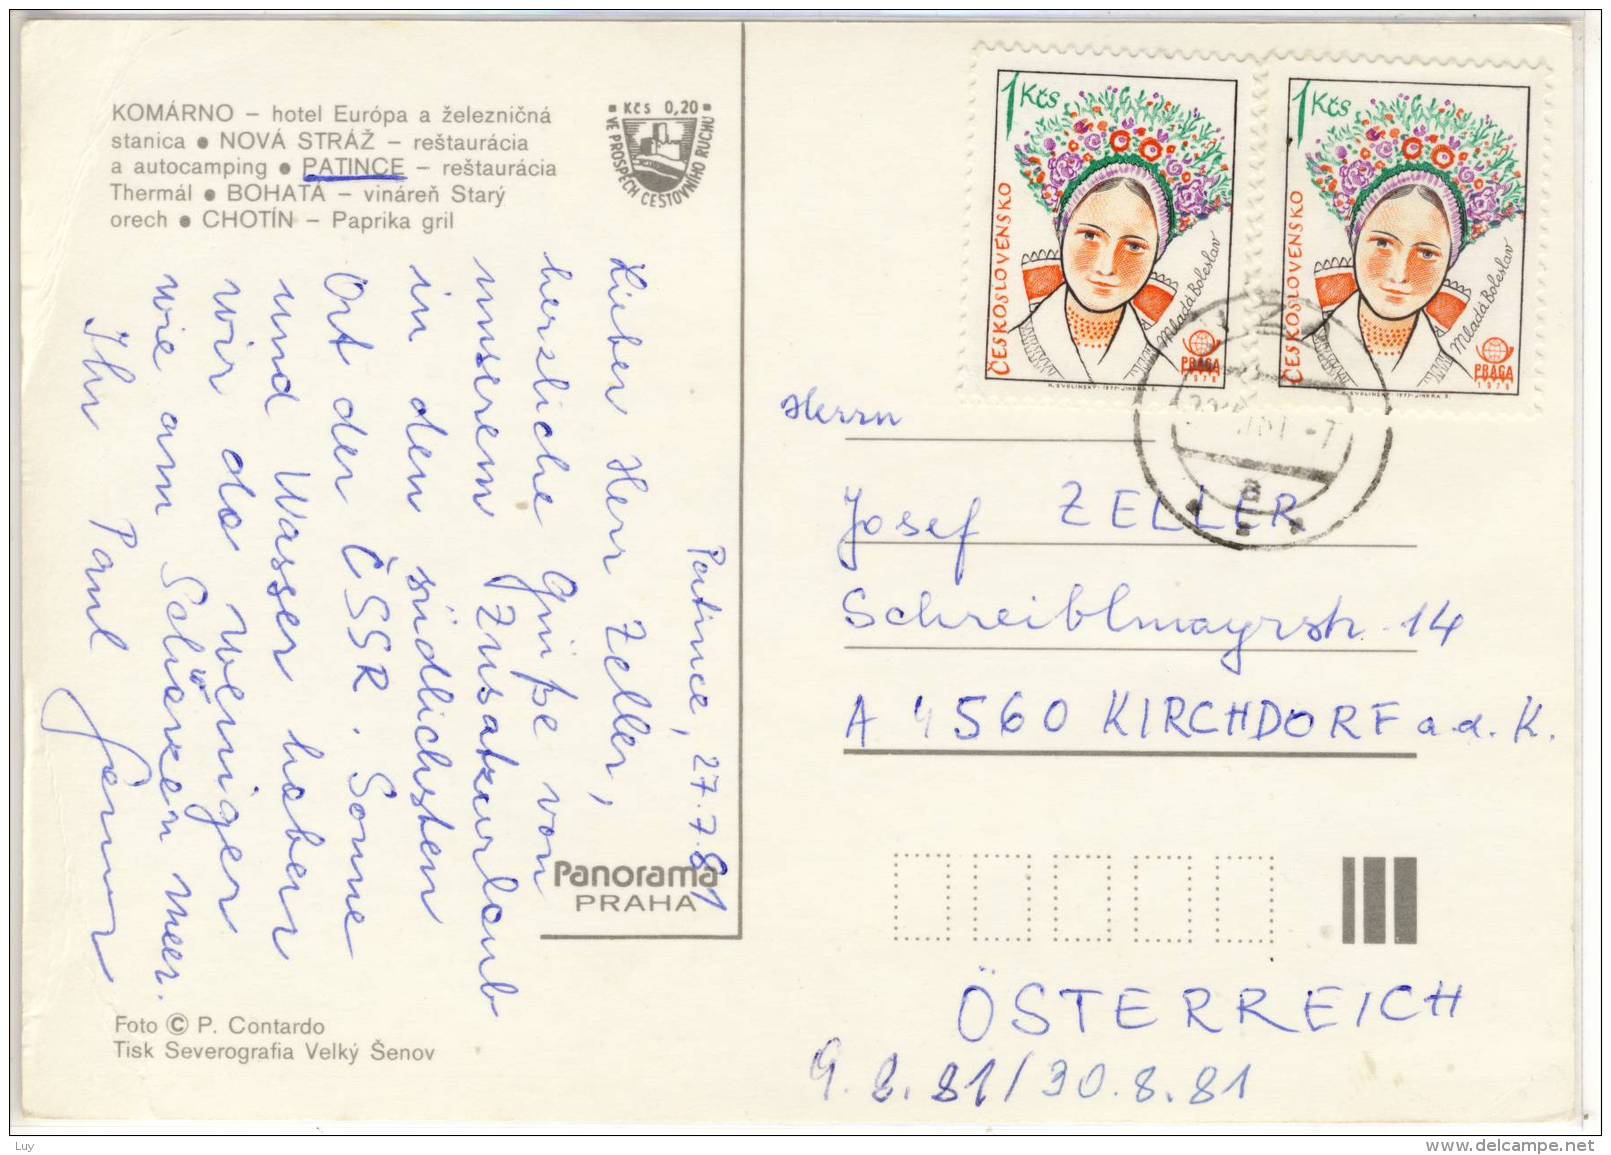 KOMÁRNO – hotel Európa a železničná
stanica ● NOVÁ STRÁŽ – reštaurácia
a autocamping ● PATINCE – reštaurácia
Thermál ● BOHATÁ – vináreň Starý
orech ● CHOTÍN – Paprika gril
Kčs 0,20
VE PROSPĚCH CESTOVNÍHO RUCHU
Patince, 27.7.81
Lieber Herr Zeller,
herzliche Grüße von
unserem Zusatzurlaub
in den südlichsten
Ort der ČSSR. Sonne
und Wasser haben
wir da weniger
wie am Schwarzen Meer.
Ihr Paul
Panorama
PRAHA
Foto © P. Contardo
Tisk Severografia Velký Šenov
1 Kčs
ČESKOSLOVENSKO
Mladá Boleslav
PRAGA
1978
K. SVOLINSKÝ-1977-JINDRA S.
1 Kčs
ČESKOSLOVENSKO
Mladá Boleslav
PRAGA
1978
K. SVOLINSKÝ-1977-JINDRA S.
Herrn
Josef ZELLER
Schreiblmayrstr. 14
A 4560 KIRCHDORF a.d.K.
ÖSTERREICH
9.8.81/30.8.81
Luy
www.delcampe.net